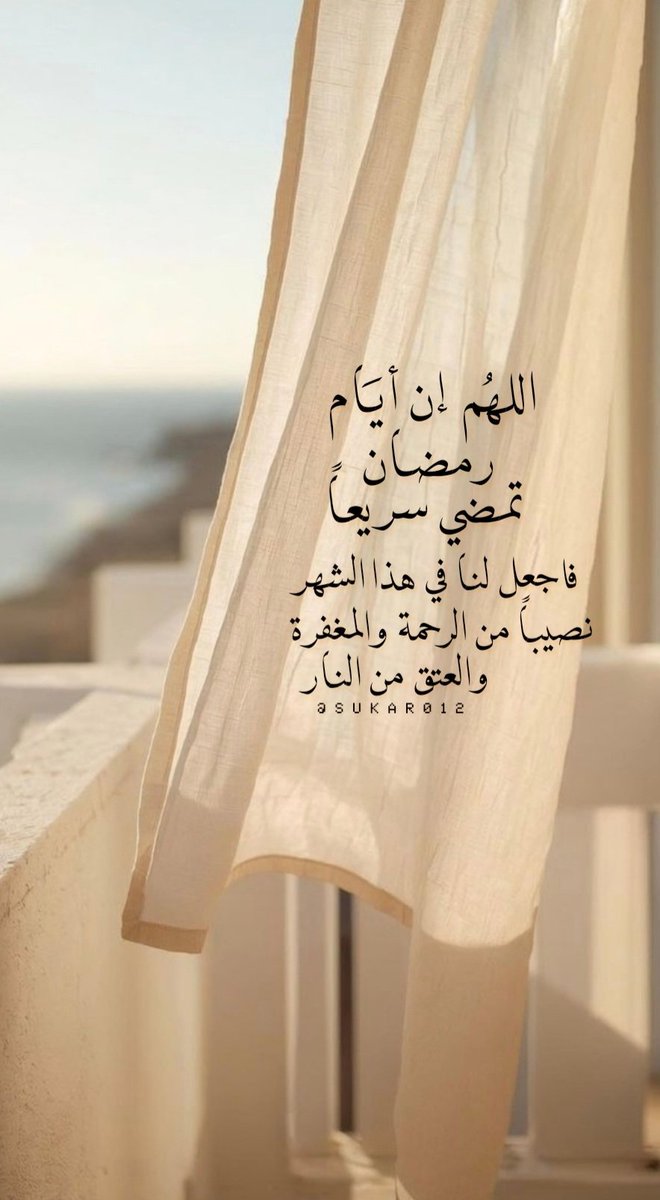 اللهُم إن أيَام
رمضان
تمضي سريعاً
فاجعل لنا في هذا الشهر
نصيباً من الرحمة والمغفرة
والعتق من النار
@SUKAR012